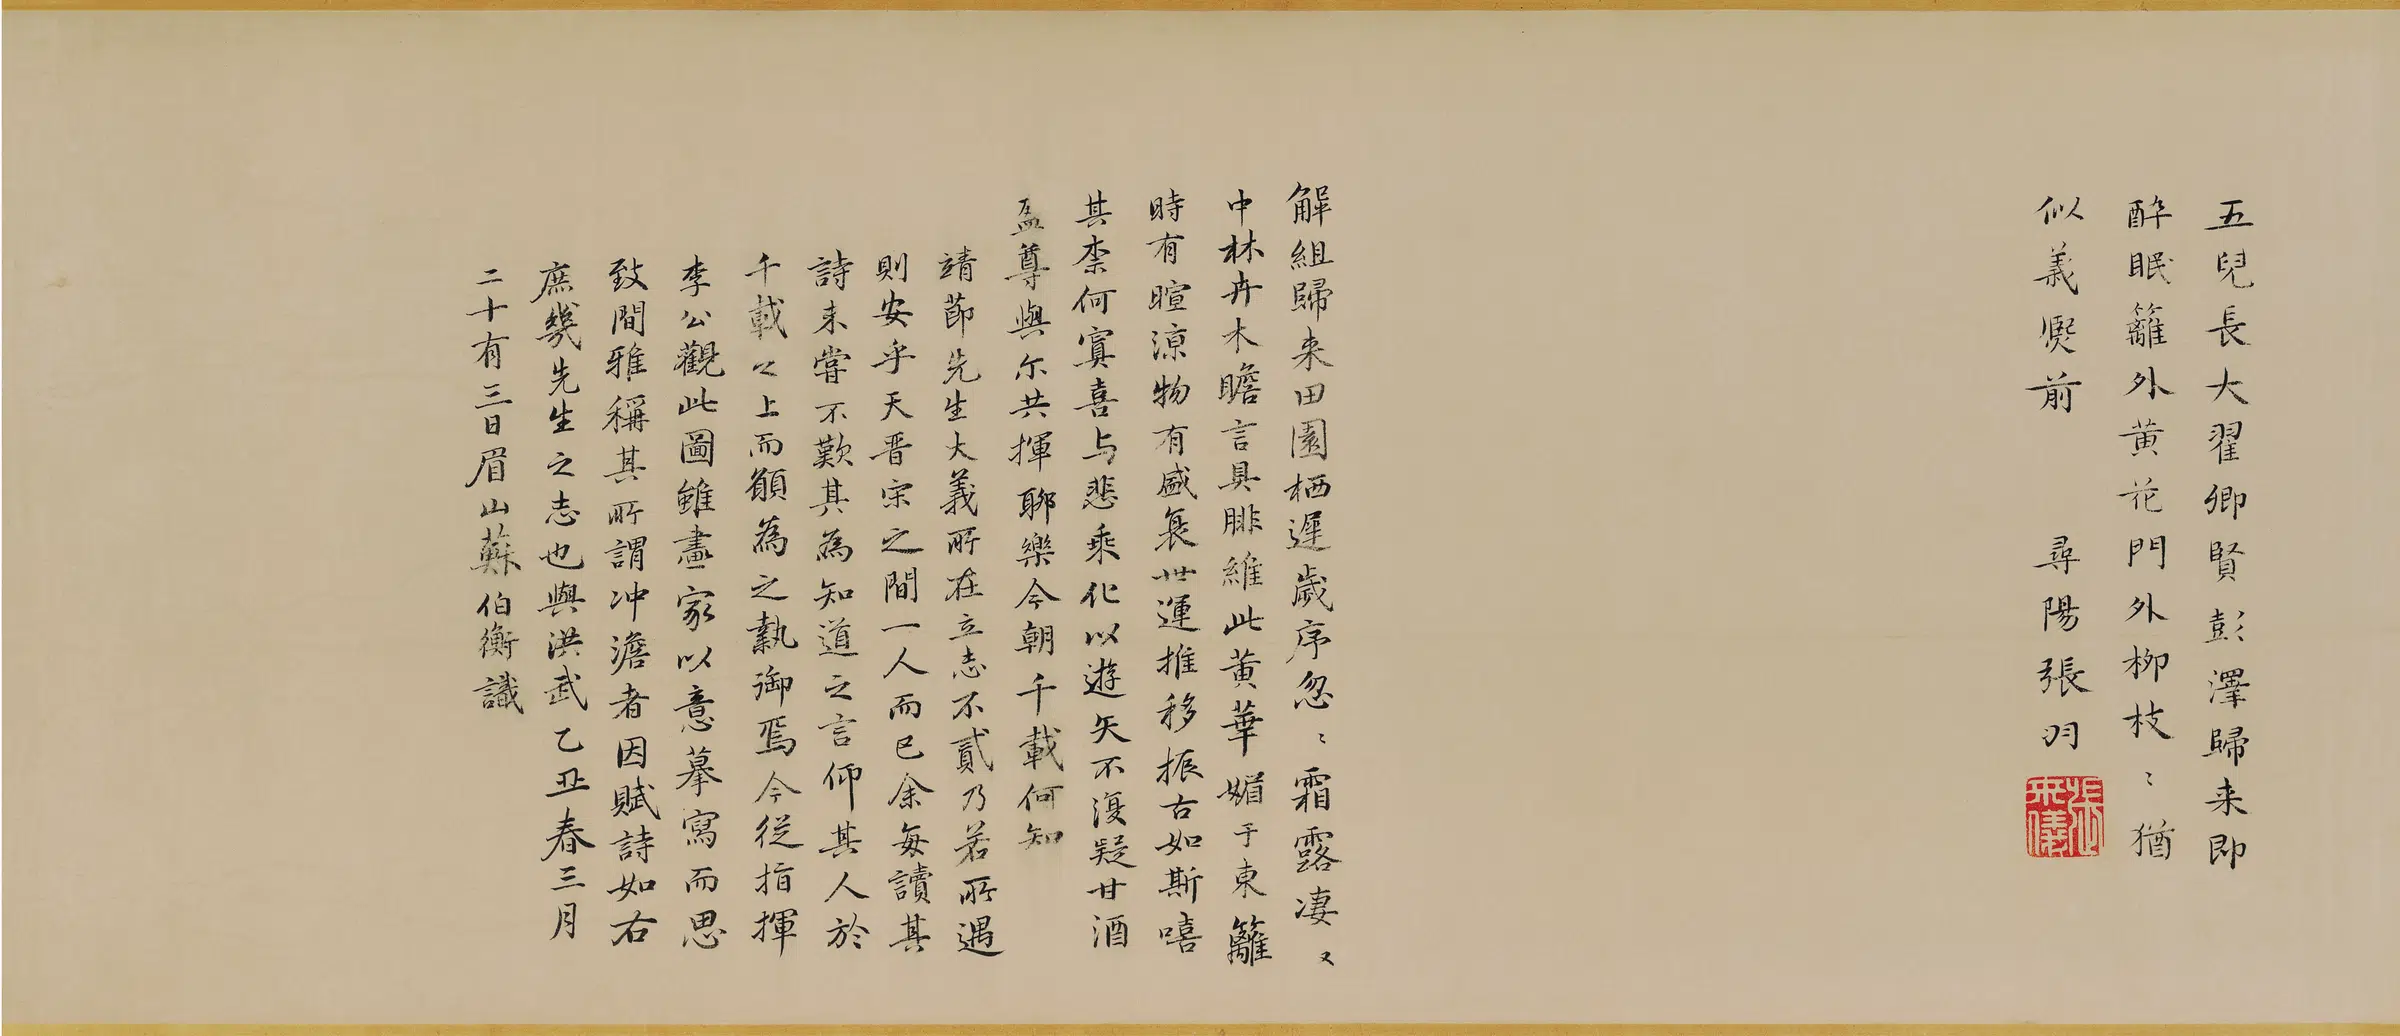 五兒長大翟卿賢彭澤歸来即
醉眠籬外黄花門外柳枝〻猶
似義熈前　尋陽張羽
解組歸来田園栖遲歲序忽〻霜露凄〻
中林卉木瞻言具腓維此黄華媚于東籬
時有暄涼物有盛衰世運推移振古如斯嘻
其柰何寘喜与悲乘化以遊矢不復疑甘酒
盈尊與尔共揮聊樂今朝千載何知
靖節先生大義所在立志不貳乃若所遇
則安乎天晋宋之間一人而已余每讀其
詩未嘗不歎其為知道之言仰其人於
千載之上而願為之執御焉今從指揮
李公觀此圖雖畫家以意摹寫而思
致閒雅稱其所謂冲澹者因賦詩如右
庶幾先生之志也與洪武乙丑春三月
二十有三日眉山蘇伯衡識